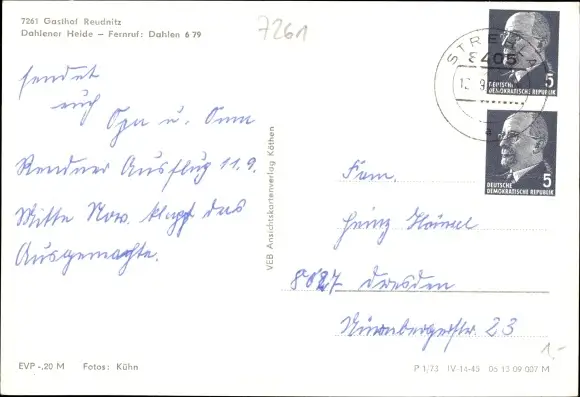 7261 Gasthof Reudnitz
Dahlener Heide – Fernruf: Dahlen 6 79
7261
STREHLA
8405
a
5
DEUTSCHE
DEMOKRATISCHE REPUBLIK
5
DEUTSCHE
DEMOKRATISCHE REPUBLIK
sendet
euch
Opa u. Oma
Rentner Ausflug 11.9.
Mitte Nov. klappt das
Ausgemachte.
VEB Ansichtskartenverlag Köthen
Fam.
Heinz
8027 Dresden
Nürnbergerstr 23
1,-
EVP -,20 M Fotos: Kühn
P 1/73 IV-14-45 05 13 09 007 M